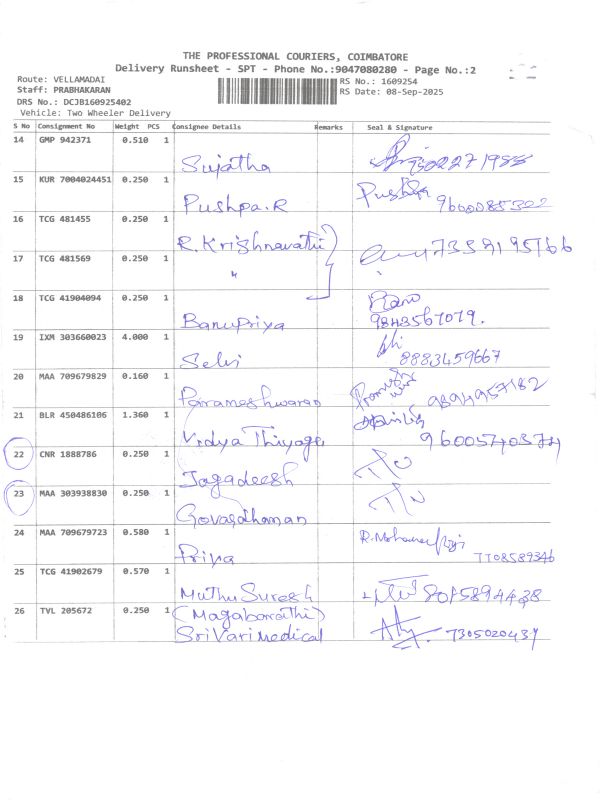 THE PROFESSIONAL COURIERS, COIMBATORE
Delivery Runsheet - SPT - Phone No.:9047080280 - Page No.:2
Route: VELLAMADAI
RS No.: 1609254
Staff: PRABHAKARAN
RS Date: 08-Sep-2025
DRS No.: DCJB160925402
Vehicle: Two Wheeler Delivery
S No Consignment No Weight PCS Consignee Details Remarks Seal & Signature
14 GMP 942371 0.510 1
Sujatha
15 KUR 7004024451 0.250 1
Pushpa.R Pushpa 9600085302
16 TCG 481455 0.250 1
R.Krishnavathi
17 TCG 481569 0.250 1
"
18 TCG 41904094 0.250 1
BanuPriya 9843567079.
19 IXM 303660023 4.000 1
Selvi 8883459667
20 MAA 709679829 0.160 1
Parameshwaran 9894957182
21 BLR 450486106 1.360 1
Vidya Thiyage 9600540374
22 CNR 1888786 0.250 1
Jagadeesh
23 MAA 303938830 0.250 1
Govardhanan
24 MAA 709679723 0.580 1
Priya 7708589346
25 TCG 41902679 0.570 1
Muthu Suresh 8015894438
26 TVL 205672 0.250 1 (Magabarathi)
Sri Vari Medical 7305020437